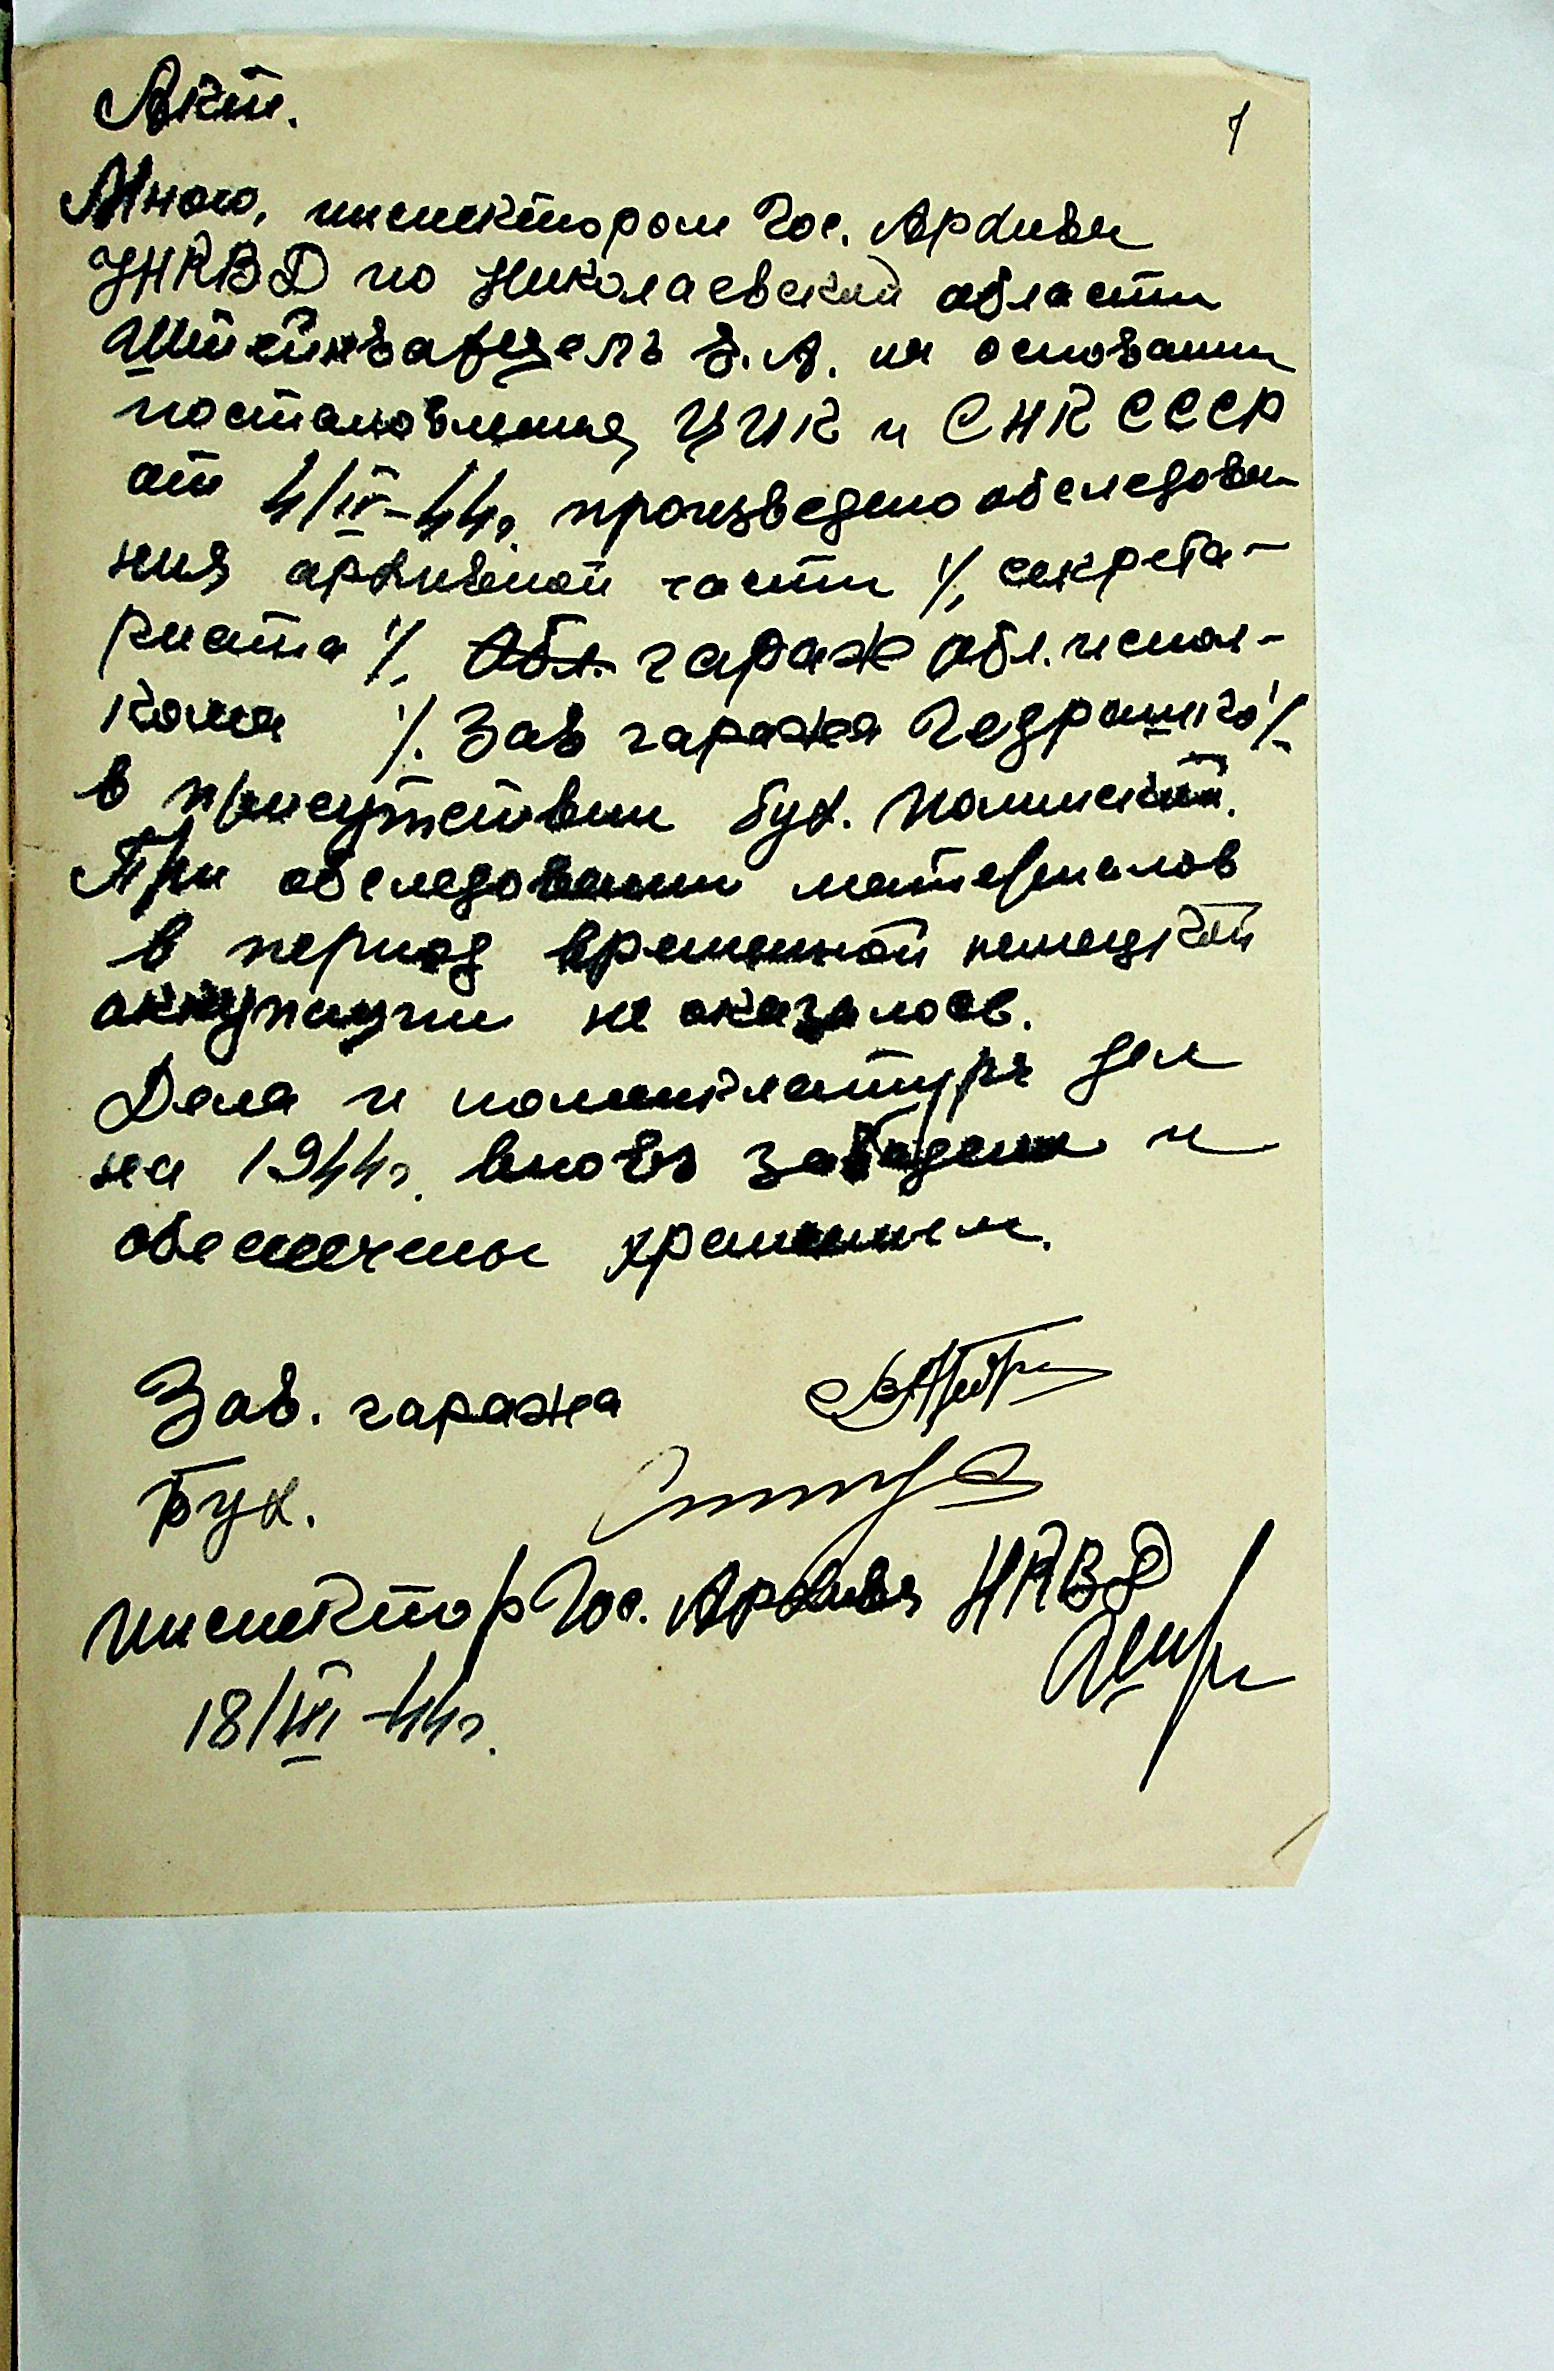 Акт.
1
Мною, инспектором Гос. Архива
УНКВД по Николаевской области
на основании
постановления ЦИК и СНК СССР
от 4/IV-44г. произведено обследова-
ния архивной части %, секрета-
риата %. Обл. гараж Обл. испол-
кома %. Зав гаража %
в присутствии бух.
При обследовании материалов
в период временной немецкой
оккупации не оказалось.
Дела и номенклатура дел
на 1944г. вновь заведены и
обеспечены хранением.
Зав. гаража
Бух.
Инспектор Гос. Архива НКВД
18/VII-44г.